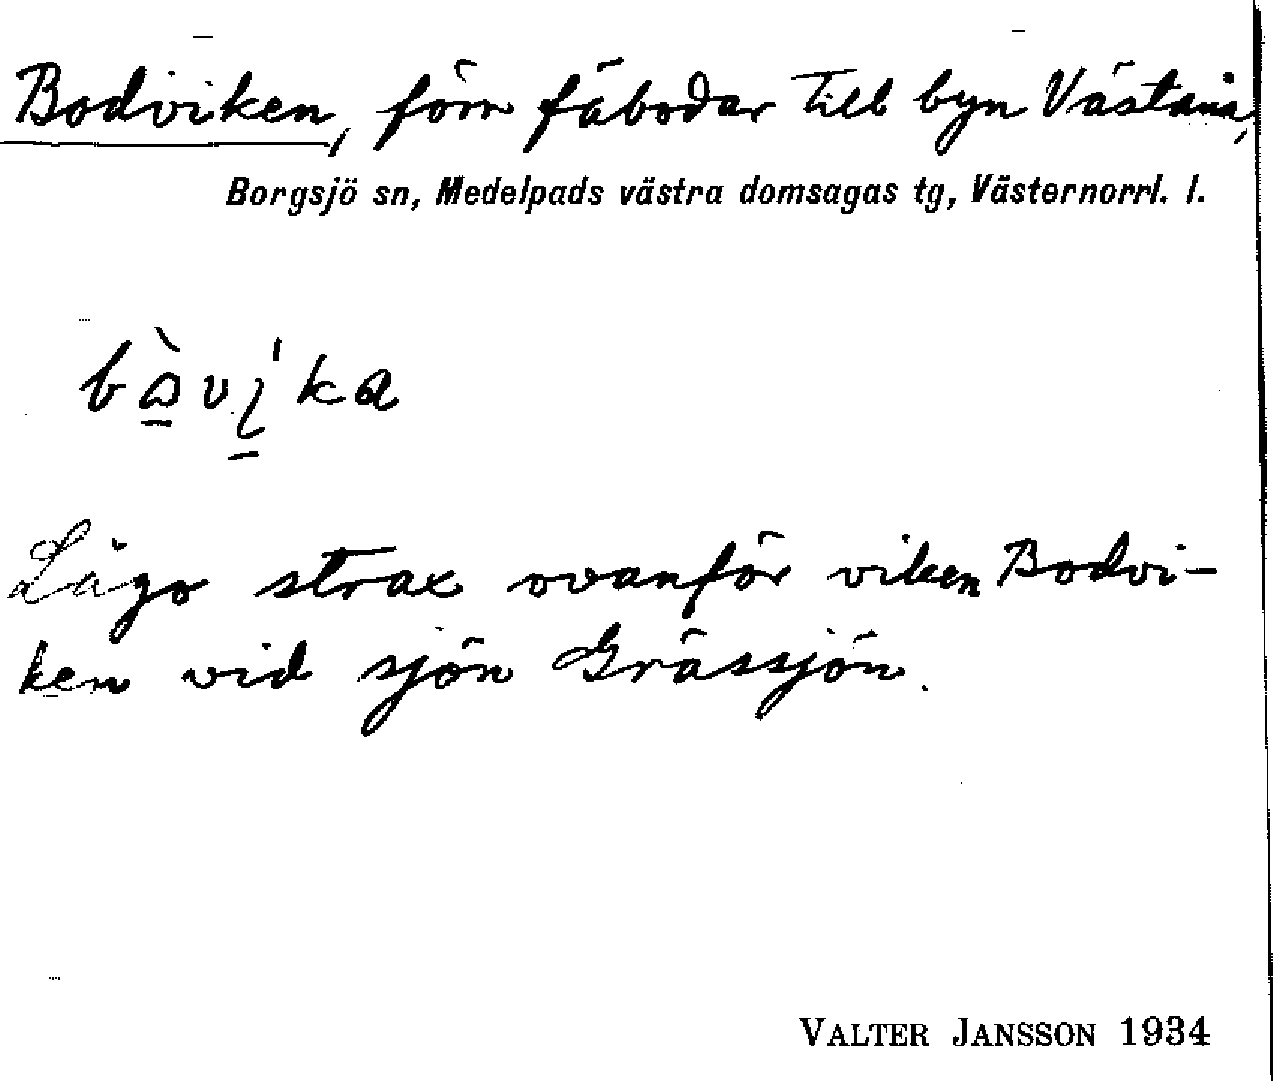 Bodviken, förn fäbodar till byn Västanå,
Borgsjö sn, Medelpads västra domsagas tg, Västernorrl. l.
Lågo strax ovanför viken Bodvi-
ken vid sjön Grässjön.
VALTER JANSSON 1934